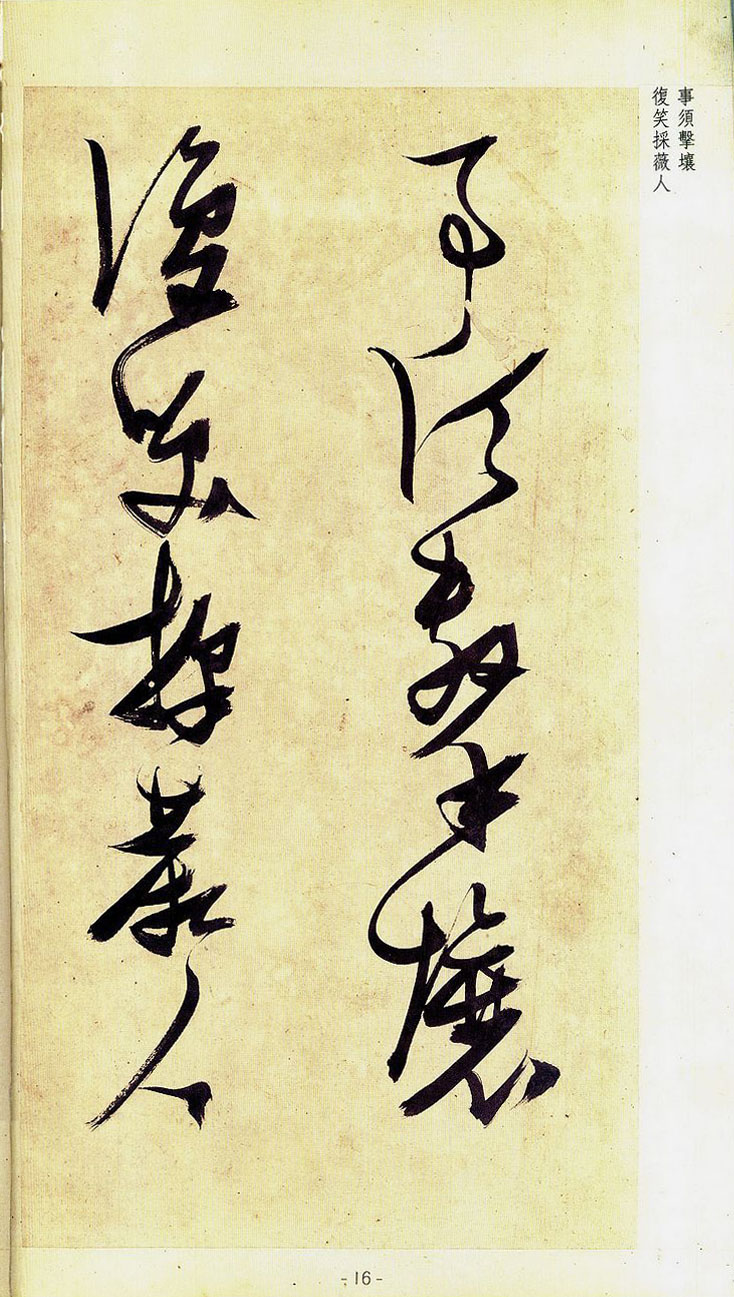 事須擊壤
復笑採薇人
事須擊壤
復笑採薇人
-16-